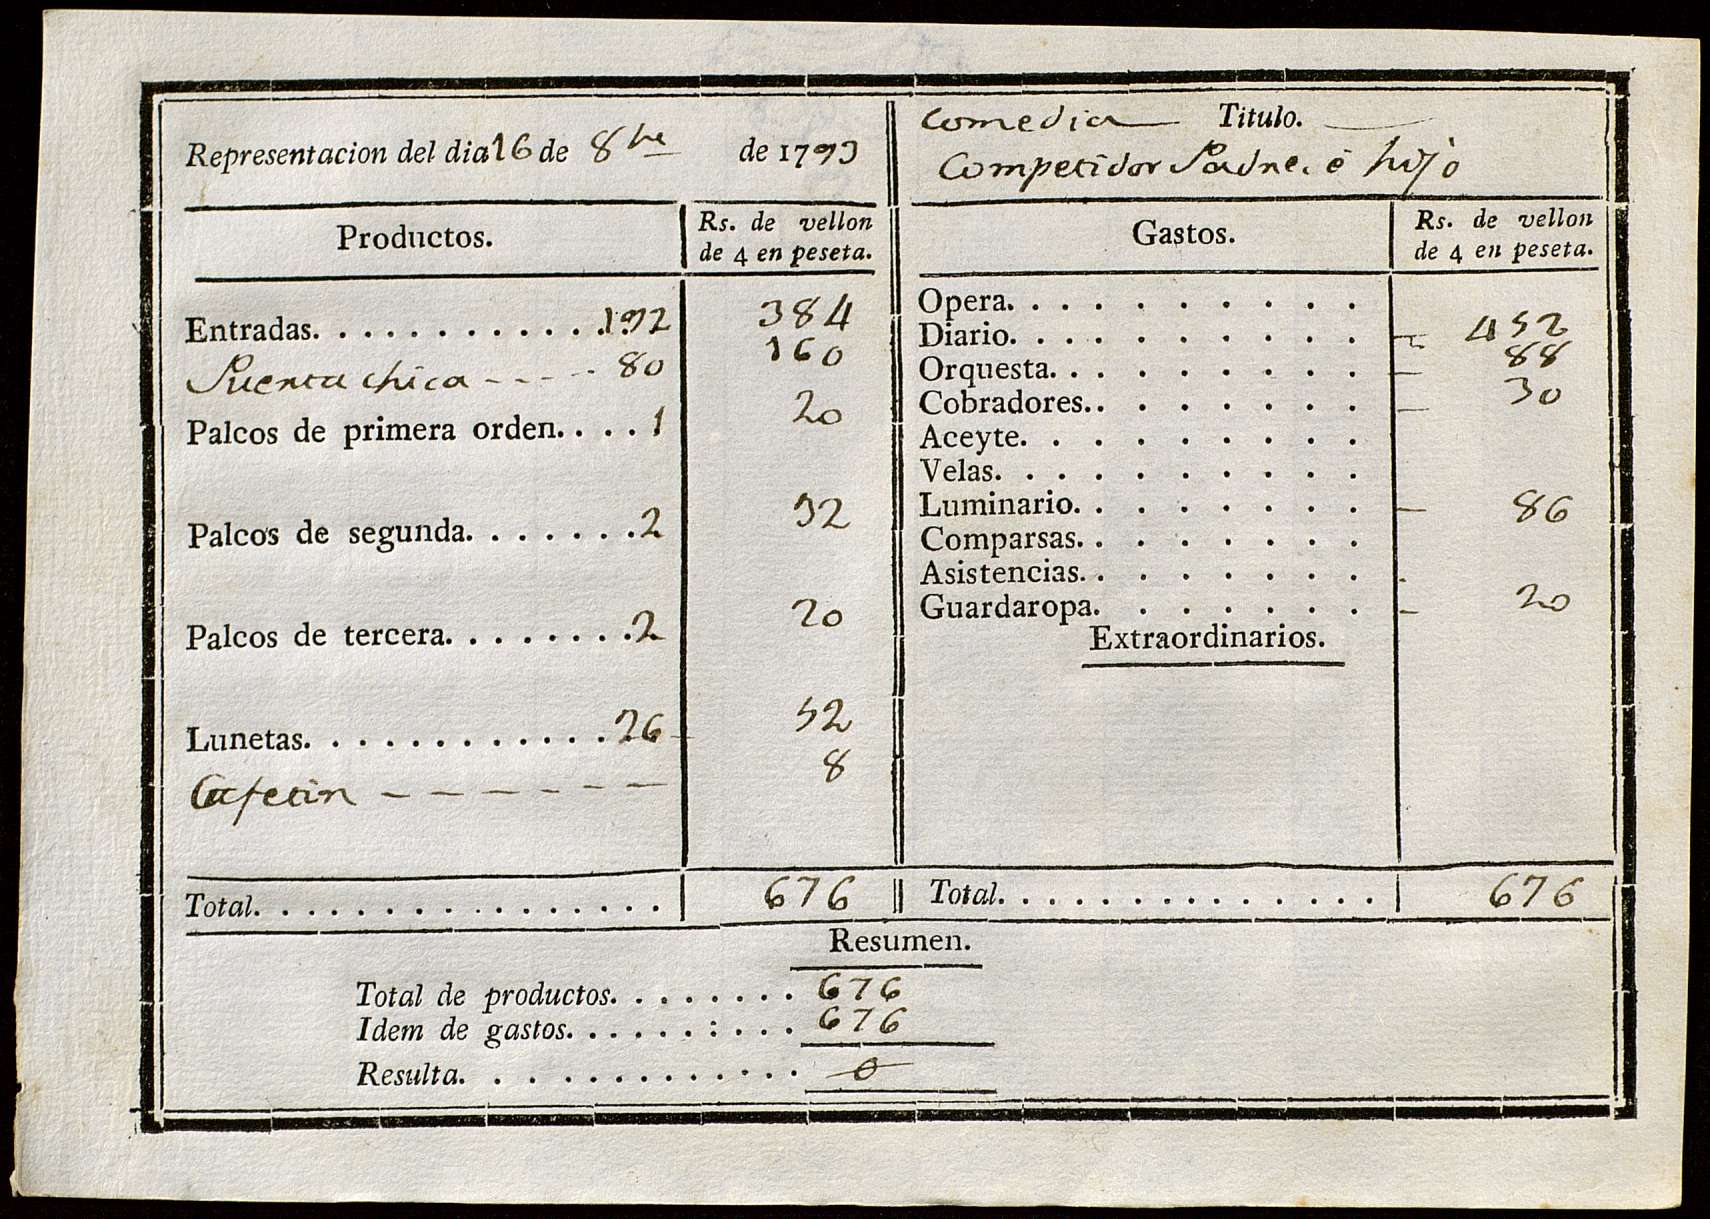 Representacion del dia 16 de 8bre de 1793
Productos. Rs. de vellon de 4 en peseta.
Entradas. . . . . . . . . . . . . 192 384
Puerta chica - - - - - 80 160
Palcos de primera orden. . . . 1 20
Palcos de segunda. . . . . . . 2 32
Palcos de tercera. . . . . . . . 2 20
Lunetas. . . . . . . . . . . . . 26 52
Cafetin - - - - - - - 8
Total. . . . . . . . . . . . . . . . . 676
Comedia Titulo.
Competidor Padre, é hijo
Gastos. Rs. de vellon de 4 en peseta.
Opera. . . . . . . . . . .
Diario. . . . . . . . . . . 452
Orquesta. . . . . . . . . 88
Cobradores. . . . . . . . 30
Aceyte. . . . . . . . . .
Velas. . . . . . . . . . .
Luminario. . . . . . . . 86
Comparsas. . . . . . . .
Asistencias. . . . . . . .
Guardaropa. . . . . . . 20
Extraordinarios.
Total. . . . . . . . . . . . . . . 676
Resumen.
Total de productos. . . . . . . . 676
Idem de gastos. . . . . . : . . . 676
Resulta. . . . . . . . . . . . . . 0